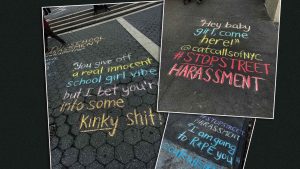 "You give off
a real innocent
school girl vibe
but I bet you're
into some
Kinky shit!"
"Hey baby
girl, come
here!"
@catcallsofnyc
#STOPSTREET
HARASSMENT
#STOPSTREET
HARASSMENT
"I am going
to RAPE you